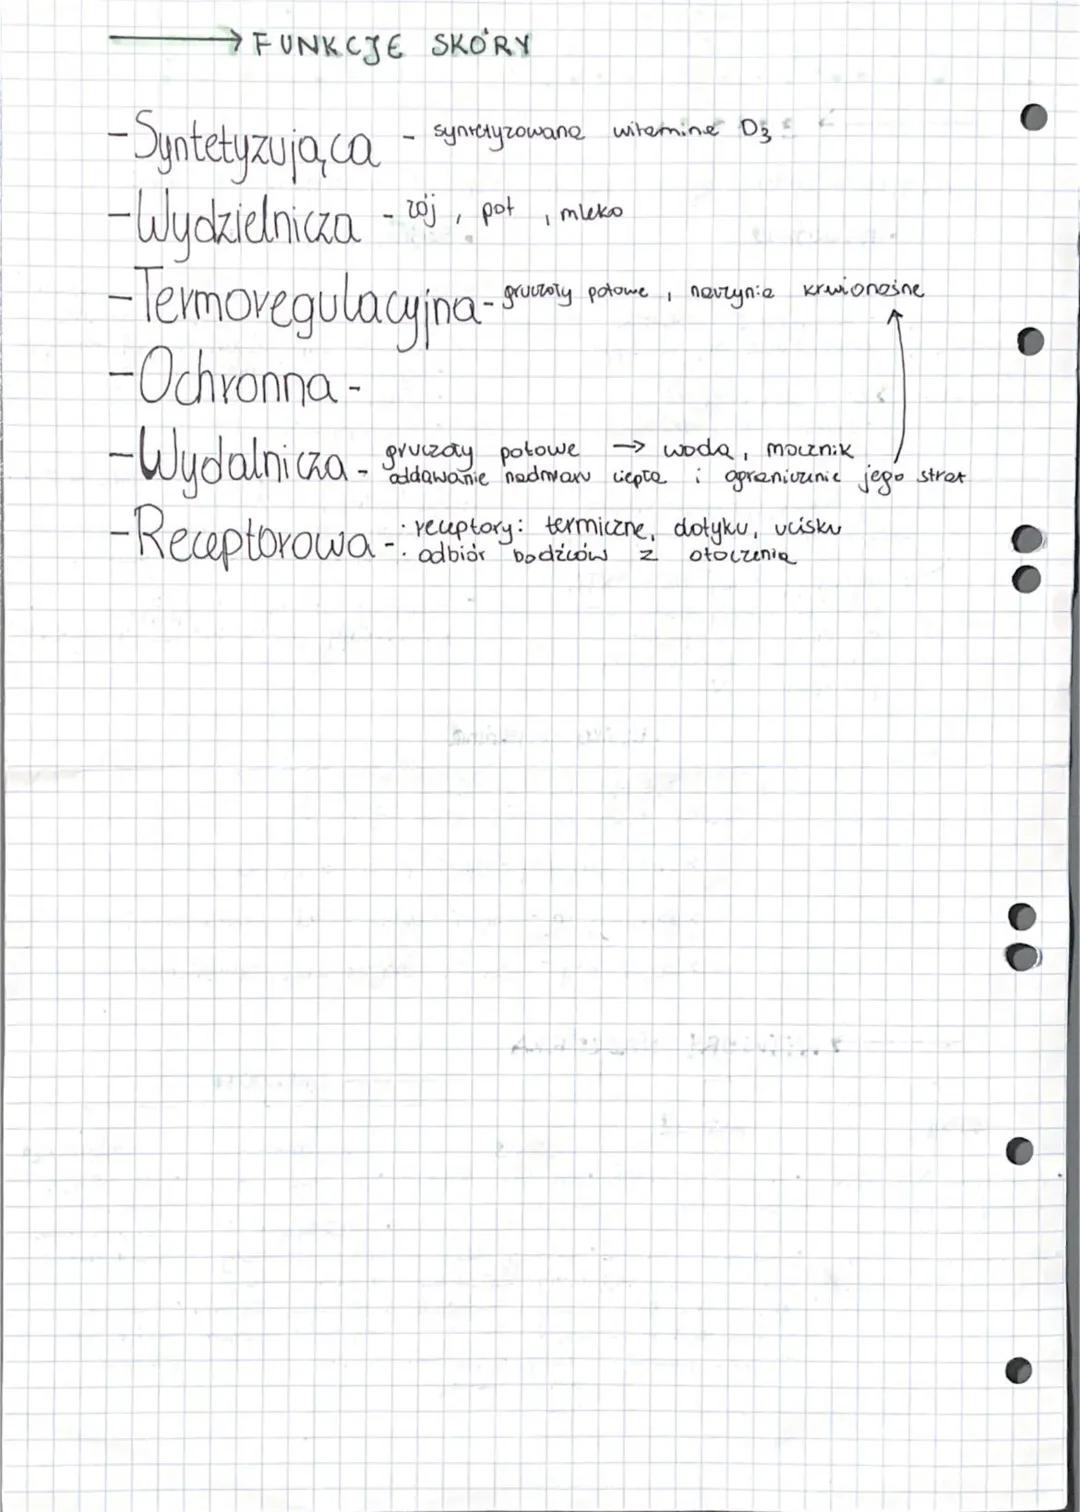 → FUNKCJE SKÓRY
- Syntetyzująca - syntetyzowanie witaminę D3
- Wydzielnicza - łój, pot, mleko
- Termoregulacyjna - gruczoły potowe, naczynia krwionośne
- Ochronna -
- Wydalnicza - gruczoły potowe → woda, mocznik
oddawanie nadmiaru ciepła i ograniczenie jego strat
- Receptorowa - · receptory: termiczne, dotyku, ucisku
· odbiór bodźców z otoczenia